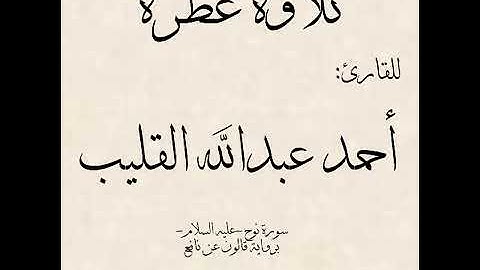 تلاوة عطرة
للقارئ:
أحمد عبدالله القليب
سورة نوح -عليه السلام-
برواية قالون عن نافع